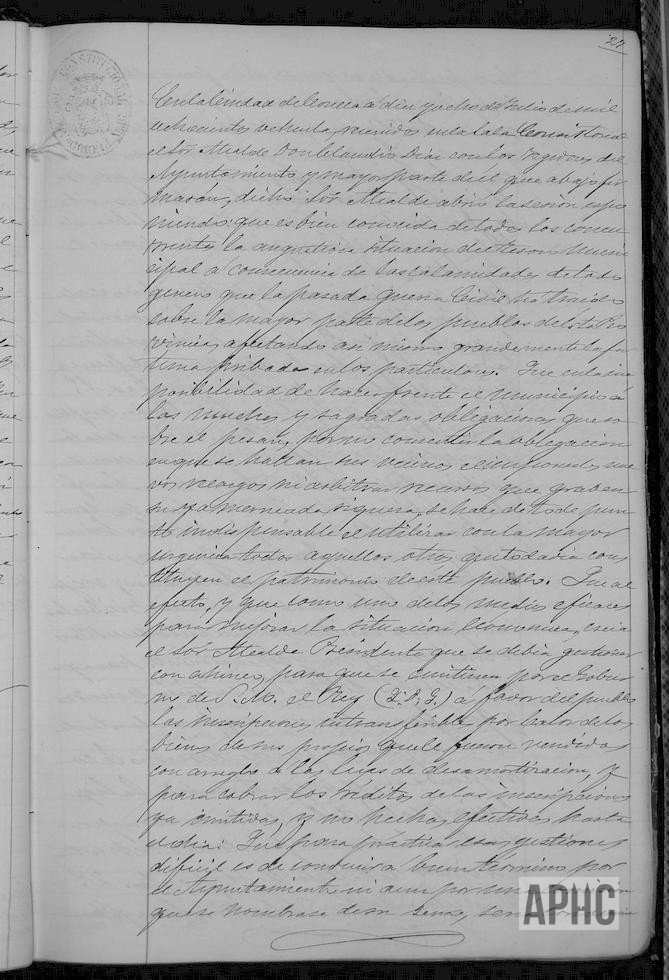 27
CONSTITUCIONAL
En la Ciudad de Cuenca a diez y ocho de Julio de mil
ochocientos ochenta, reunidos en la Sala Consistorial
el Sor. Alcalde Don Claudio Diaz con los Regidores del
Ayuntamiento y mayor parte de él que abajo fir
marán, dicho Sor. Alcalde abrió la sesion espo
niendo: que es bien conocida de todos los concu
rrentes la angustiosa situacion del tesoro Muni
cipal a consecuencia de las calamidades de todo
genero que la pasada guerra Civil ha traido
sobre la mayor parte de los pueblos de esta Pro
vincia, afectando asi mismo grandemente la for
tuna pribada en los particulares. Que en la im
posibilidad de hacer frente el Municipio á
las muchas y sagradas obligaciones que so
bre el pesan, por no consentir la obligacion
en que se hallan sus vecinos el imponerles nue
vos recargos ni arbitrar recursos que graben
su ya mermada riqueza, se hace de todo pun
to indispensable el utilizar con la mayor
urgencia todos aquellos otros que todavia cons
tituyen el patrimonio de este pueblo. Que al
efecto, y que como uno de los medios eficaces
para mejorar la situacion economica, creia
el Sor. Alcalde Presidente que se debia gestionar
con ahinco, para que se emitiesen por el Gobier
no de S. M. el Rey (q. D. g.) á favor del pueblo
las inscripciones intransferibles por valor de los
bienes de sus propios que le fueron vendidos
con arreglo a las leyes de desamortizacion, y
para cobrar los reditos de las inscripciones
ya emitidas, y no hechos efectivos hasta
el dia: Que para practicar esas gestiones
dificil es de conducir á buen término por
el Ayuntamiento ni aun por una
que se nombrase de su seno, sen
APHC